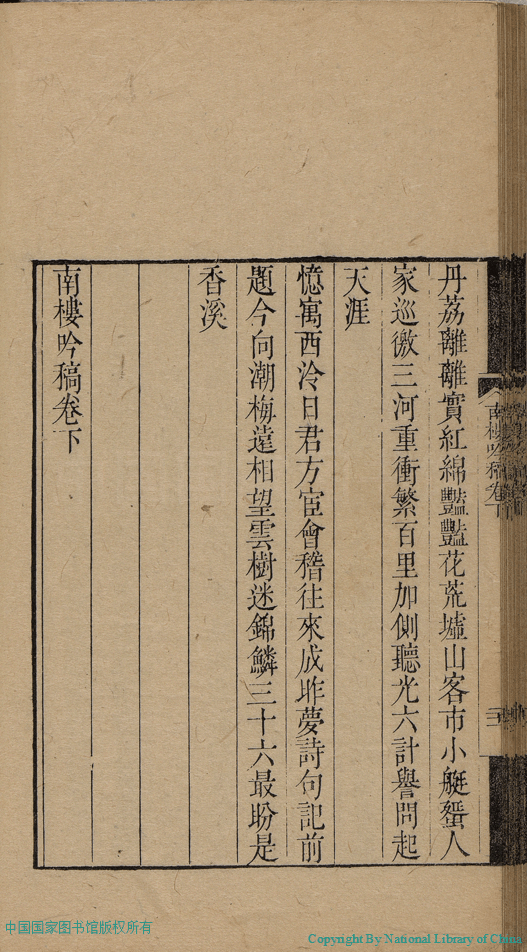 丹荔離離實紅綿豔豔花荒墟山客市小艇蜑人
家巡徼三河重衝繁百里加側聽光六計譽問起
天涯
憶寓西泠日君方宦會稽往來成昨夢詩句記前
題今向潮梅遠相望雲樹迷錦鱗三十六最盼是
香溪
南樓吟稿卷下
南樓吟稿卷下
中国国家图书馆版权所有
Copyright By National Library of China